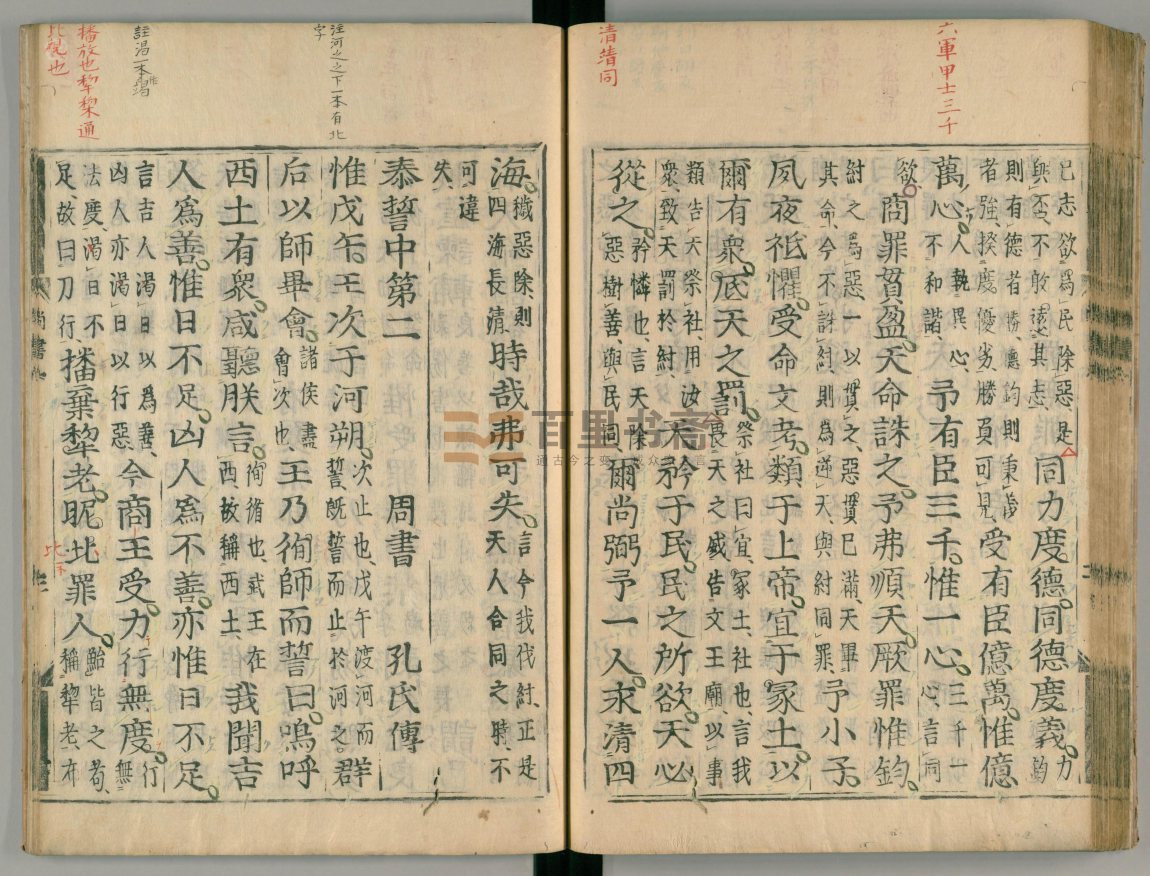 六軍甲士三千
清靖同
己志欲爲民除惡是與否不敢遠其志同力度德同德度義力鈞
則有德者勝德鈞則秉義者強揆度優劣勝負可見受有臣億萬惟億
萬心人執異心不和諧予有臣三千惟一心三千一心言同
欲商罪貫盈天命誅之予弗順天厥罪惟鈞
紂之爲惡一以貫之惡貫已滿天畢其命今不誅紂則為逆天與紂同罪予小子
夙夜祗懼受命文考類于上帝宜于冢土以
爾有衆厎天之罰祭社曰宜冢土社也言我畏天之威告文王廟以事
類告天祭社用汝衆致天罰於紂天矜于民民之所欲天必
從之矜憐也言天除惡樹善與民同爾尚弼予一人永清四
注河之之下一本有北字
註渴一本竭
播放也犂黎通
海穢惡除則四海長清時哉弗可失言今我伐紂正是天人合同之時不
可違失
泰誓中第二 周書 孔氏傳
惟戊午王次于河朔次止也戊午渡河而誓既誓而止於河之群
后以師畢會諸侯盡會次也王乃徇師而誓曰嗚呼
西土有衆咸聽朕言徇循也武王在西故稱西土我聞吉
人爲善惟日不足凶人爲不善亦惟日不足
言吉人渴日以爲善凶人亦渴日以行惡今商王受力行無度行無
法度渴日不足故曰力行播棄犂老昵比罪人鮐背之耇稱犂老布
百里书斋